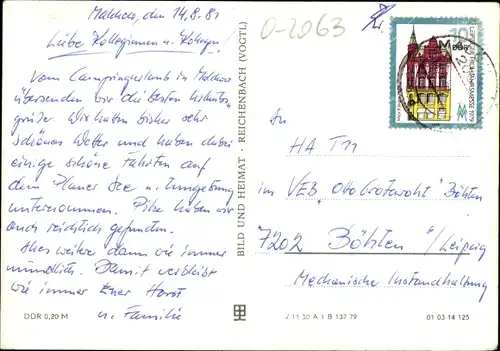 Malchow, den 14.8.81
Liebe Kolleginnen u. Kollegen!
Vom Campingurlaub in Malchow
übersenden wir die besten Urlaubs-
grüße. Wir hatten bisher sehr
schönes Wetter und haben dabei
einige schöne Fahrten auf
dem Plauer See u. Umgebung
unternommen. Pilze haben wir
auch reichlich gefunden.
Alles weitere dann wie immer
mündlich. Damit verbleibt
wie immer Euer Horst
u. Familie
DDR 0,20 M
BILD UND HEIMAT · REICHENBACH (VOGTL)
0-2063
10
DDR
LEIPZIGER FRÜHJAHRSMESSE 1979
An
HA T11
im VEB "Otto Grotewohl" Böhlen
7202 Böhlen b/Leipzig
Mechanische Instandhaltung
Z 11 50 A 1 B 137 79
01 03 14 125